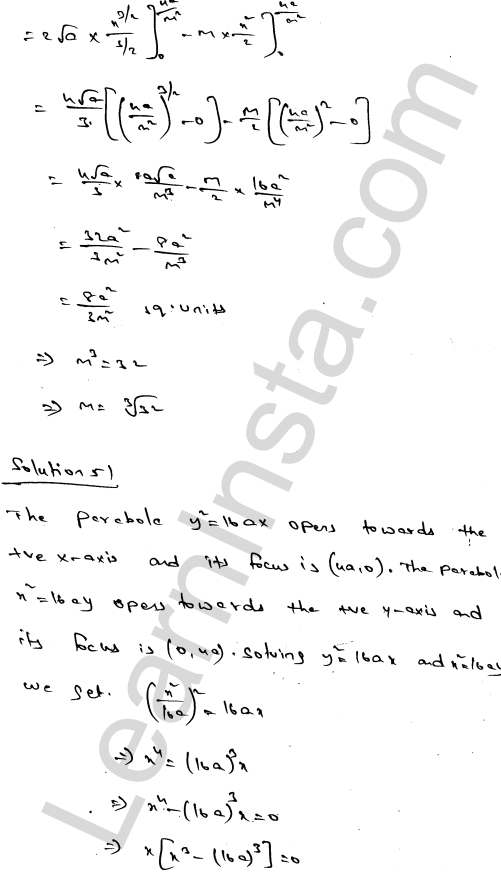 = 2√a × x^{3/2}/(3/2) ]_0^{4a/m²} - m × x²/2 ]_0^{4a/m²}
= 4√a/3 [ (4a/m²)^{3/2} - 0 ] - m/2 [ (4a/m²)² - 0 ]
= 4√a/3 × 8a√a/m³ - m/2 × 16a²/m⁴
= 32a²/3m² - 8a²/m³
= 8a²/3m² sq. units
⇒ m³ = 32
⇒ m = ∛32
Solution 5)
The parabola y² = 16ax opens towards the
+ve x-axis and its focus is (4a,0). The parabol
x² = 16ay opens towards the +ve y-axis and
its focus is (0,4a). solving y² = 16ax and x² = 16ay
we get. (x²/16a)² = 16ax
⇒ x⁴ = (16a)³x
⇒ x⁴ - (16a)³x = 0
⇒ x[x³ - (16a)³] = 0
LearnInsta.com